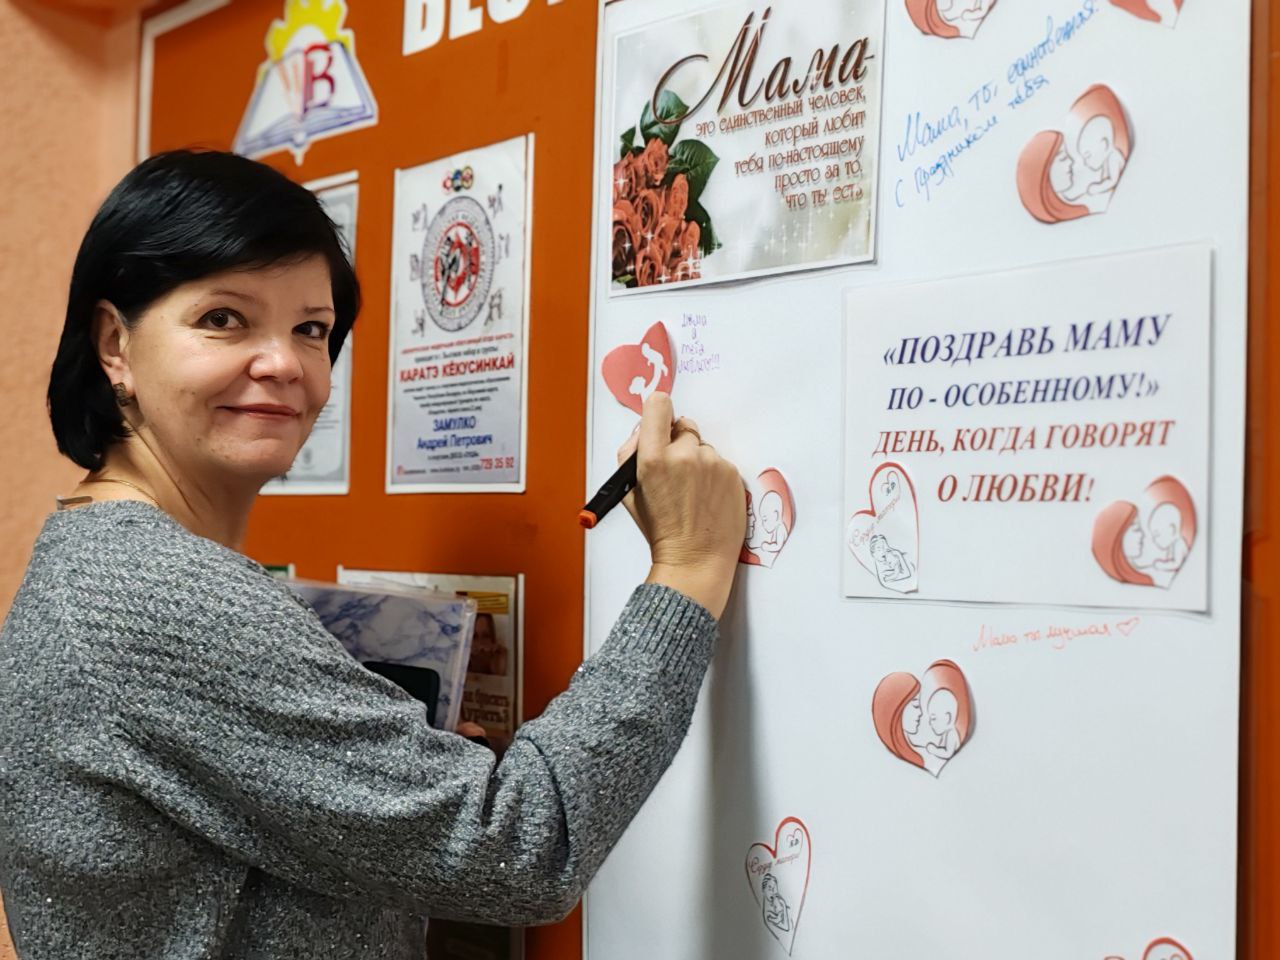 ВЕСТ
В
Мама-
это единственный человек,
который любит
тебя по-настоящему
просто за то,
что ты есть»
Мама, ты, единственная!
с праздником тебя
мама
я
тебя
люблю!!!
«ПОЗДРАВЬ МАМУ
ПО - ОСОБЕННОМУ!»
ДЕНЬ, КОГДА ГОВОРЯТ
О ЛЮБВИ!
Сердце матери
Мама ты лучшая
Сердце матери
КАРАТЭ КЁКУСИНКАЙ
ЗАМУЛКО
Андрей Петрович
729 35 92
бросить
курить?